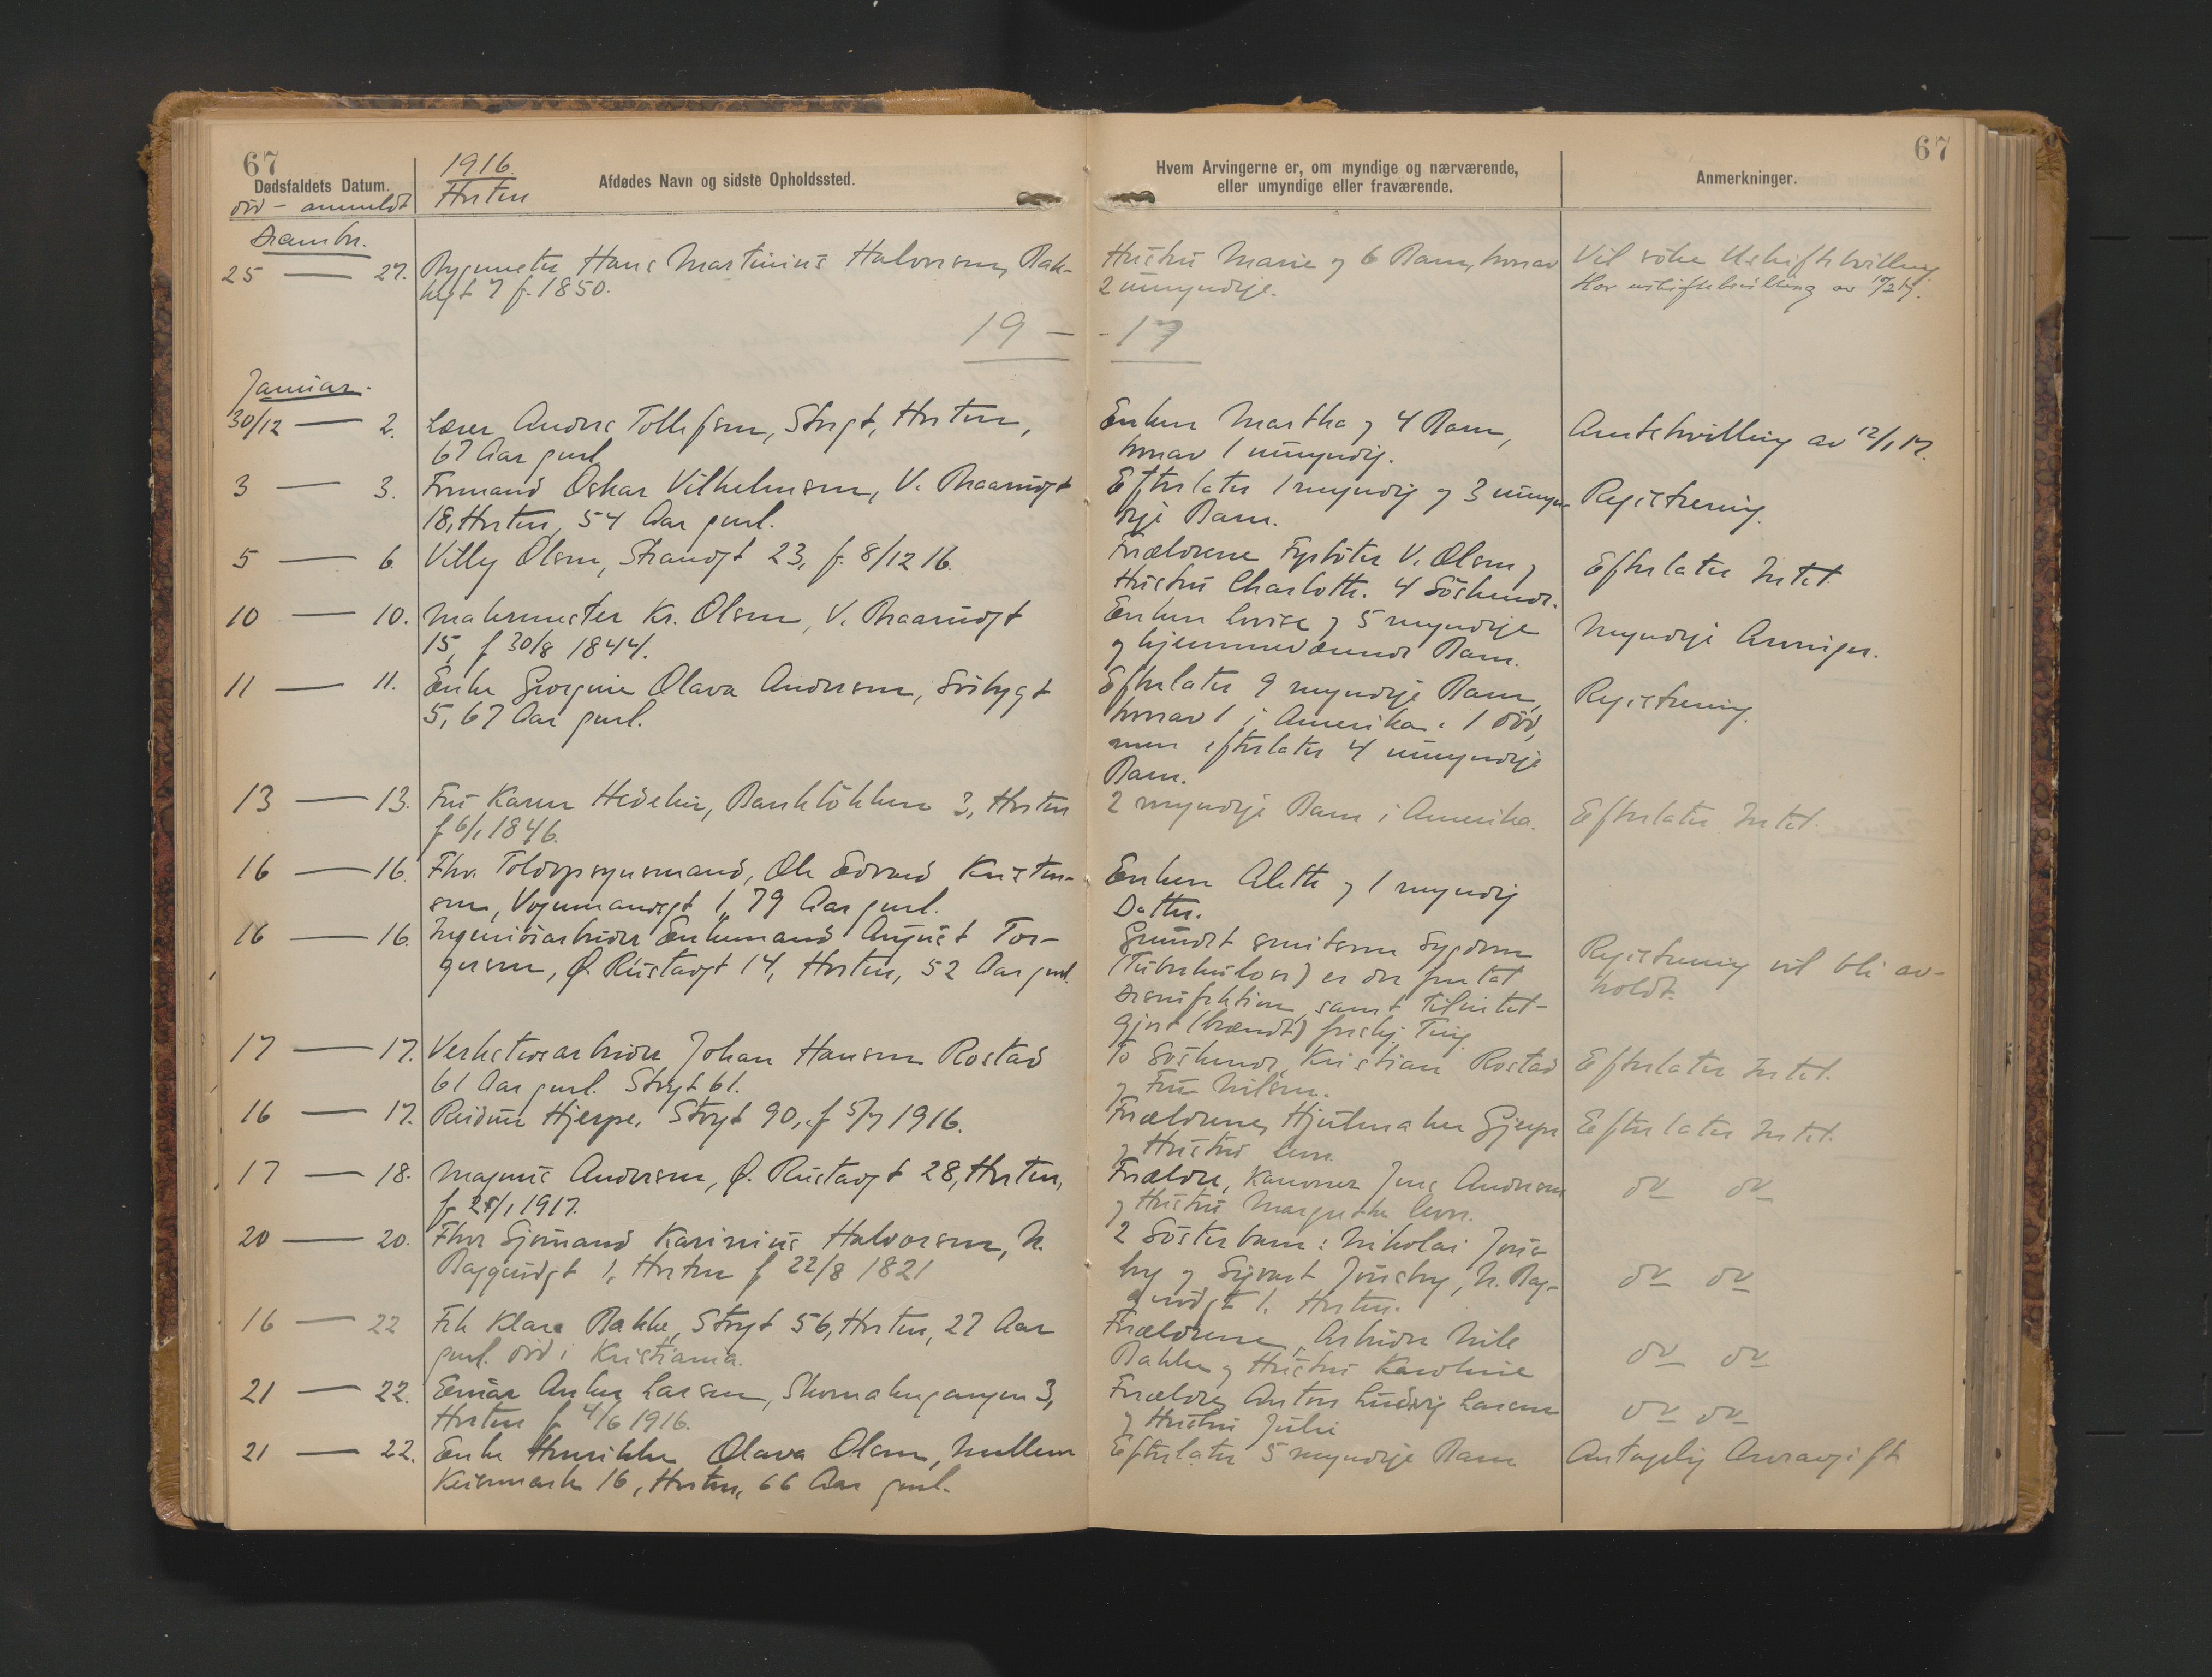 67
67
Dødsfaldets Datum.
død - anmeldt
1916.
Horten
Afdødes Navn og sidste Opholdssted.
Hvem Arvingerne er, om myndige og nærværende,
eller umyndige eller fraværende.
Anmerkninger.
Decembr.
25 — 27. Bygmester Hans Martinius Halvorsen, Bak-
kegt 7 f. 1850.
Hustru Marie og 6 Barn, hvorav
2 umyndige.
Vil søke Uskiftebevilling
Har uskiftebevilling av
19 — - 17
Januar.
30/12 — 2. Lærer Anders Tollefsen, Storgt, Horten,
67 Aar gml.
Enken Martha og 4 Barn,
hvorav 1 umyndig.
Amtsbevilling av 12/1 17.
3 — 3. Formand Oskar Vilhelmsen, V. Braarudgt
18, Horten, 54 Aar gml.
Efterlater 1 myndig og 3 umyn-
dige Barn.
Registrering.
5 — 6 Villy Olsen, Strandgt 23, f. 8/12 16.
Forældrene Fyrbøter V. Olsen og
Hustru Charlotte. 4 Søskende.
Efterlater Intet.
10 — 10. Malermester Kr. Olsen, V. Braarudgt
15, f 30/8 1844.
Enken Lovise og 5 myndige
og hjemmeværende Barn.
Myndige Arvinger.
11 — 11. Enke Georgine Olava Andersen, Sösbygt
5, 67 Aar gml.
Efterlater 9 myndige Barn,
hvorav 1 i Amerika. 1 død,
men efterlater 4 umyndige
Barn.
Registrering.
13 — 13. Fru Karen Hedelin, Bankløkken 3, Horten
f 6/1 1846.
2 myndige Barn i Amerika.
Efterlater Intet.
16 — 16. Fhv. Toldopsynsmand, Ole Edvard Kristen-
sen, Vognmandsgt 1, 79 Aar gml.
Enken Alette og 1 myndig
Datter.
16 — 16. Ingeniørarbeider Enkemand August Tor-
gersen, Ø. Rustadgt 14, Horten, 52 Aar gml.
Grundet smitsom Sygdom
(Tuberkulose) er der foretat
Desinfektion samt tilintet-
gjort (brændt) forskj. Ting
Registrering vil bli av-
holdt.
17 — 17. Verkstedsarbeider Johan Hansen Rostad
61 Aar gml. Storgt 61.
To Søskende, Kristian Rostad
og Fru Nilsen.
Efterlater Intet.
16 — 17. Reidun Hjerpe, Storgt 90, f 5/7 1916.
Forældrene, Hjulmaker Gjerpe
og Hustru
Efterlater Intet.
17 — 18. Magnus Andersen, Ø. Rustadgt 28, Horten,
f 25/1 1917.
Forældre, Kanoner Jens Andersen
og Hustru Margrethe
do do
20 — 20. Fhv Sjømand Karinius Halvorsen, N.
Baggerudgt 1, Horten f 22/8 1821
2 Søsterbarn: Nikolai Juus-
by og Sigvart Juusby, N. Bag-
gerudgt 1. Horten.
do do
16 — 22 Frk Klara Bakke, Storgt 56, Horten, 27 Aar
gml. død i Kristiania.
Forældrene, Arbeider Nils
Bakke og Hustru Karoline
do do
21 — 22. Einar Anker Larsen, Skomakergangen 3,
Horten f 4/6 1916.
Forældre, Anton Ludvig Larsen
og Hustru Julie
do do
21 — 22. Enke Henrikke Olava Olsen, Mellem
Keisemark 16, Horten, 66 Aar gml.
Efterlater 5 myndige Barn
Antagelig Arveavgift